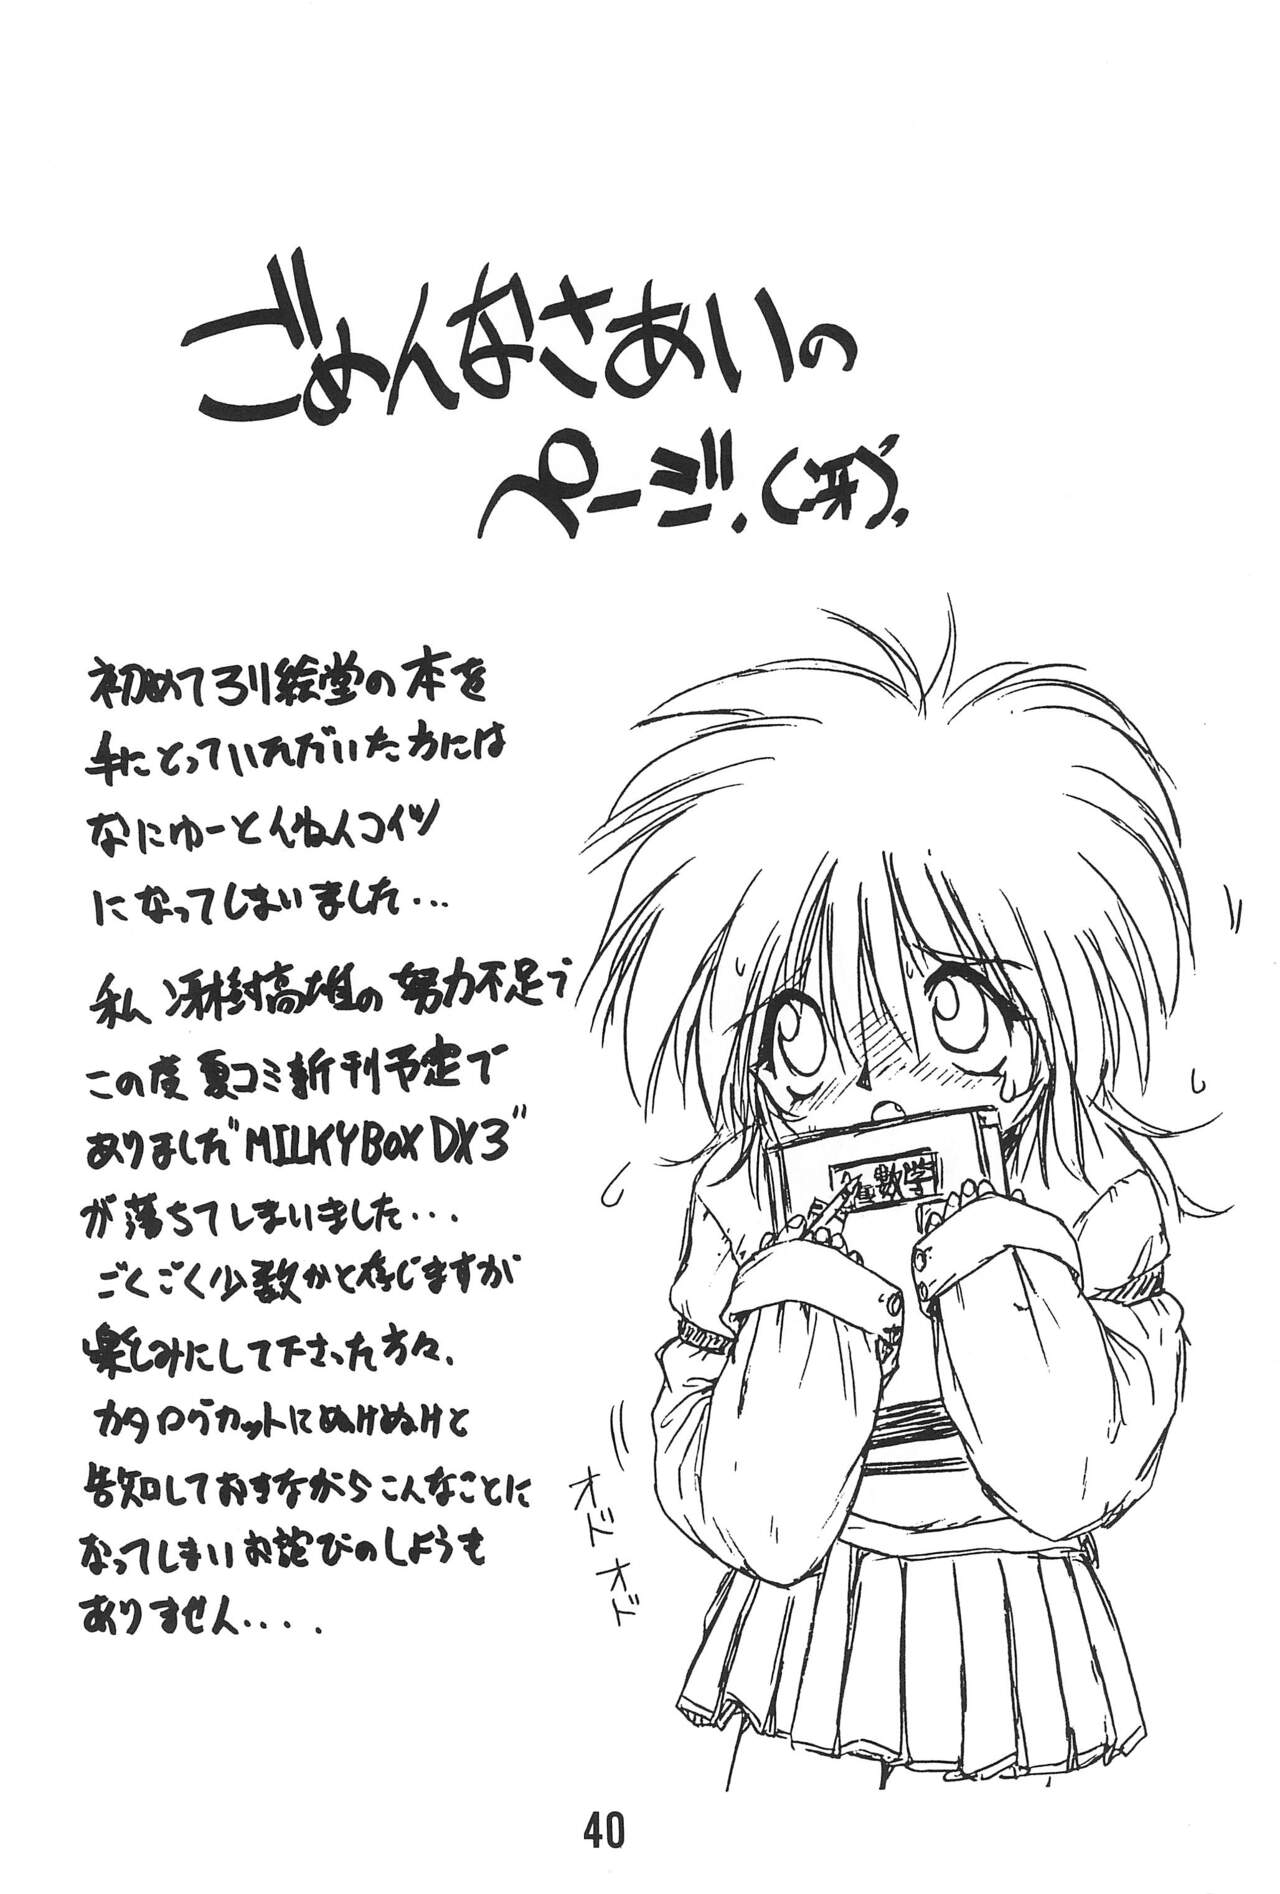 ごめんなさあいの
ぺーじ.(涙).
初めてろり絵堂の本を
手にとっていただいた方には
なにゆーとんねんコイツ
になってしまいました...
私 冴樹高雄の努力不足で
この度夏コミ新刊予定で
ありました"MILKYBOX DX3"
が落ちてしまいました...
ごくごく少数かと存じますが
楽しみにして下さった方々、
カタログカットにぬけぬけと
告知しておきながらこんなことに
なってしまいお詫びのしようも
ありません....
数学
オドオド
40